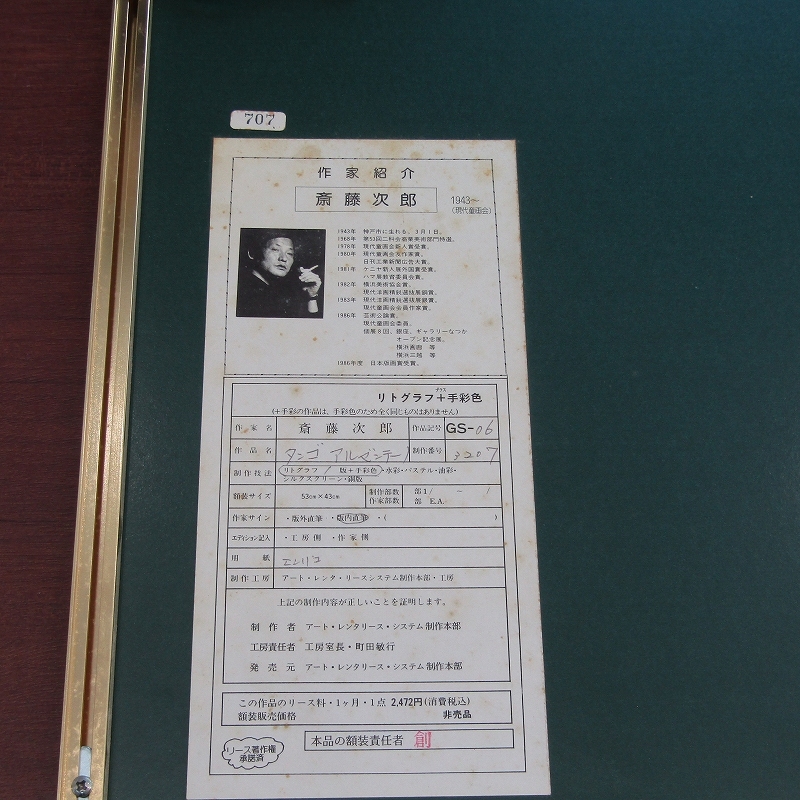 707
作家紹介
斎藤次郎
1943〜
(現代童画会)
1943年 神戸市に生れる。3月1日。
1968年 第53回二科会商業美術部門特選。
1978年 現代童画会新人賞受賞。
1980年 現代童画会友作家賞。
日刊工業新聞広告大賞。
1981年 ケニヤ新人展外国賞受賞。
ハマ展教育委員会賞。
1982年 横浜美術協会賞。
現代洋画精鋭選抜展銅賞。
1983年 現代洋画精鋭選抜展銀賞。
現代童画会会員作家賞。
1986年 芸術公論賞。
現代童画会委員。
個展8回、銀座、ギャラリーなつか
オープン記念展。
横浜高島 等
横浜三越 等
1986年度 日本版画賞受賞。
プラス
リトグラフ+手彩色
(+手彩の作品は、手彩色のため全く同じものはありません)
作家名 斎藤次郎 作品記号 GS-06
作品名 タンゴ アルゼンチーノ 制作番号 3207
制作技法 リトグラフ / 版+手彩色・水彩・パステル・油彩・
シルクスクリーン・銅版
額装サイズ 53cm×43cm 制作部数 部1/ - 1
作家部数 部 E.A.
作家サイン ・版外直筆 ・版内直筆 ・( )
エディション記入 ・工房側 ・作家側
用紙
制作工房 アート・レンタ・リースシステム制作本部・工房
上記の制作内容が正しいことを証明します。
制作者 アート・レンタリース・システム制作本部
工房責任者 工房室長・町田敏行
発売元 アート・レンタリース・システム制作本部
この作品のリース料・1ヶ月・1点 2,472円(消費税込)
額装販売価格 非売品
リース著作権
承諾済
本品の額装責任者 創